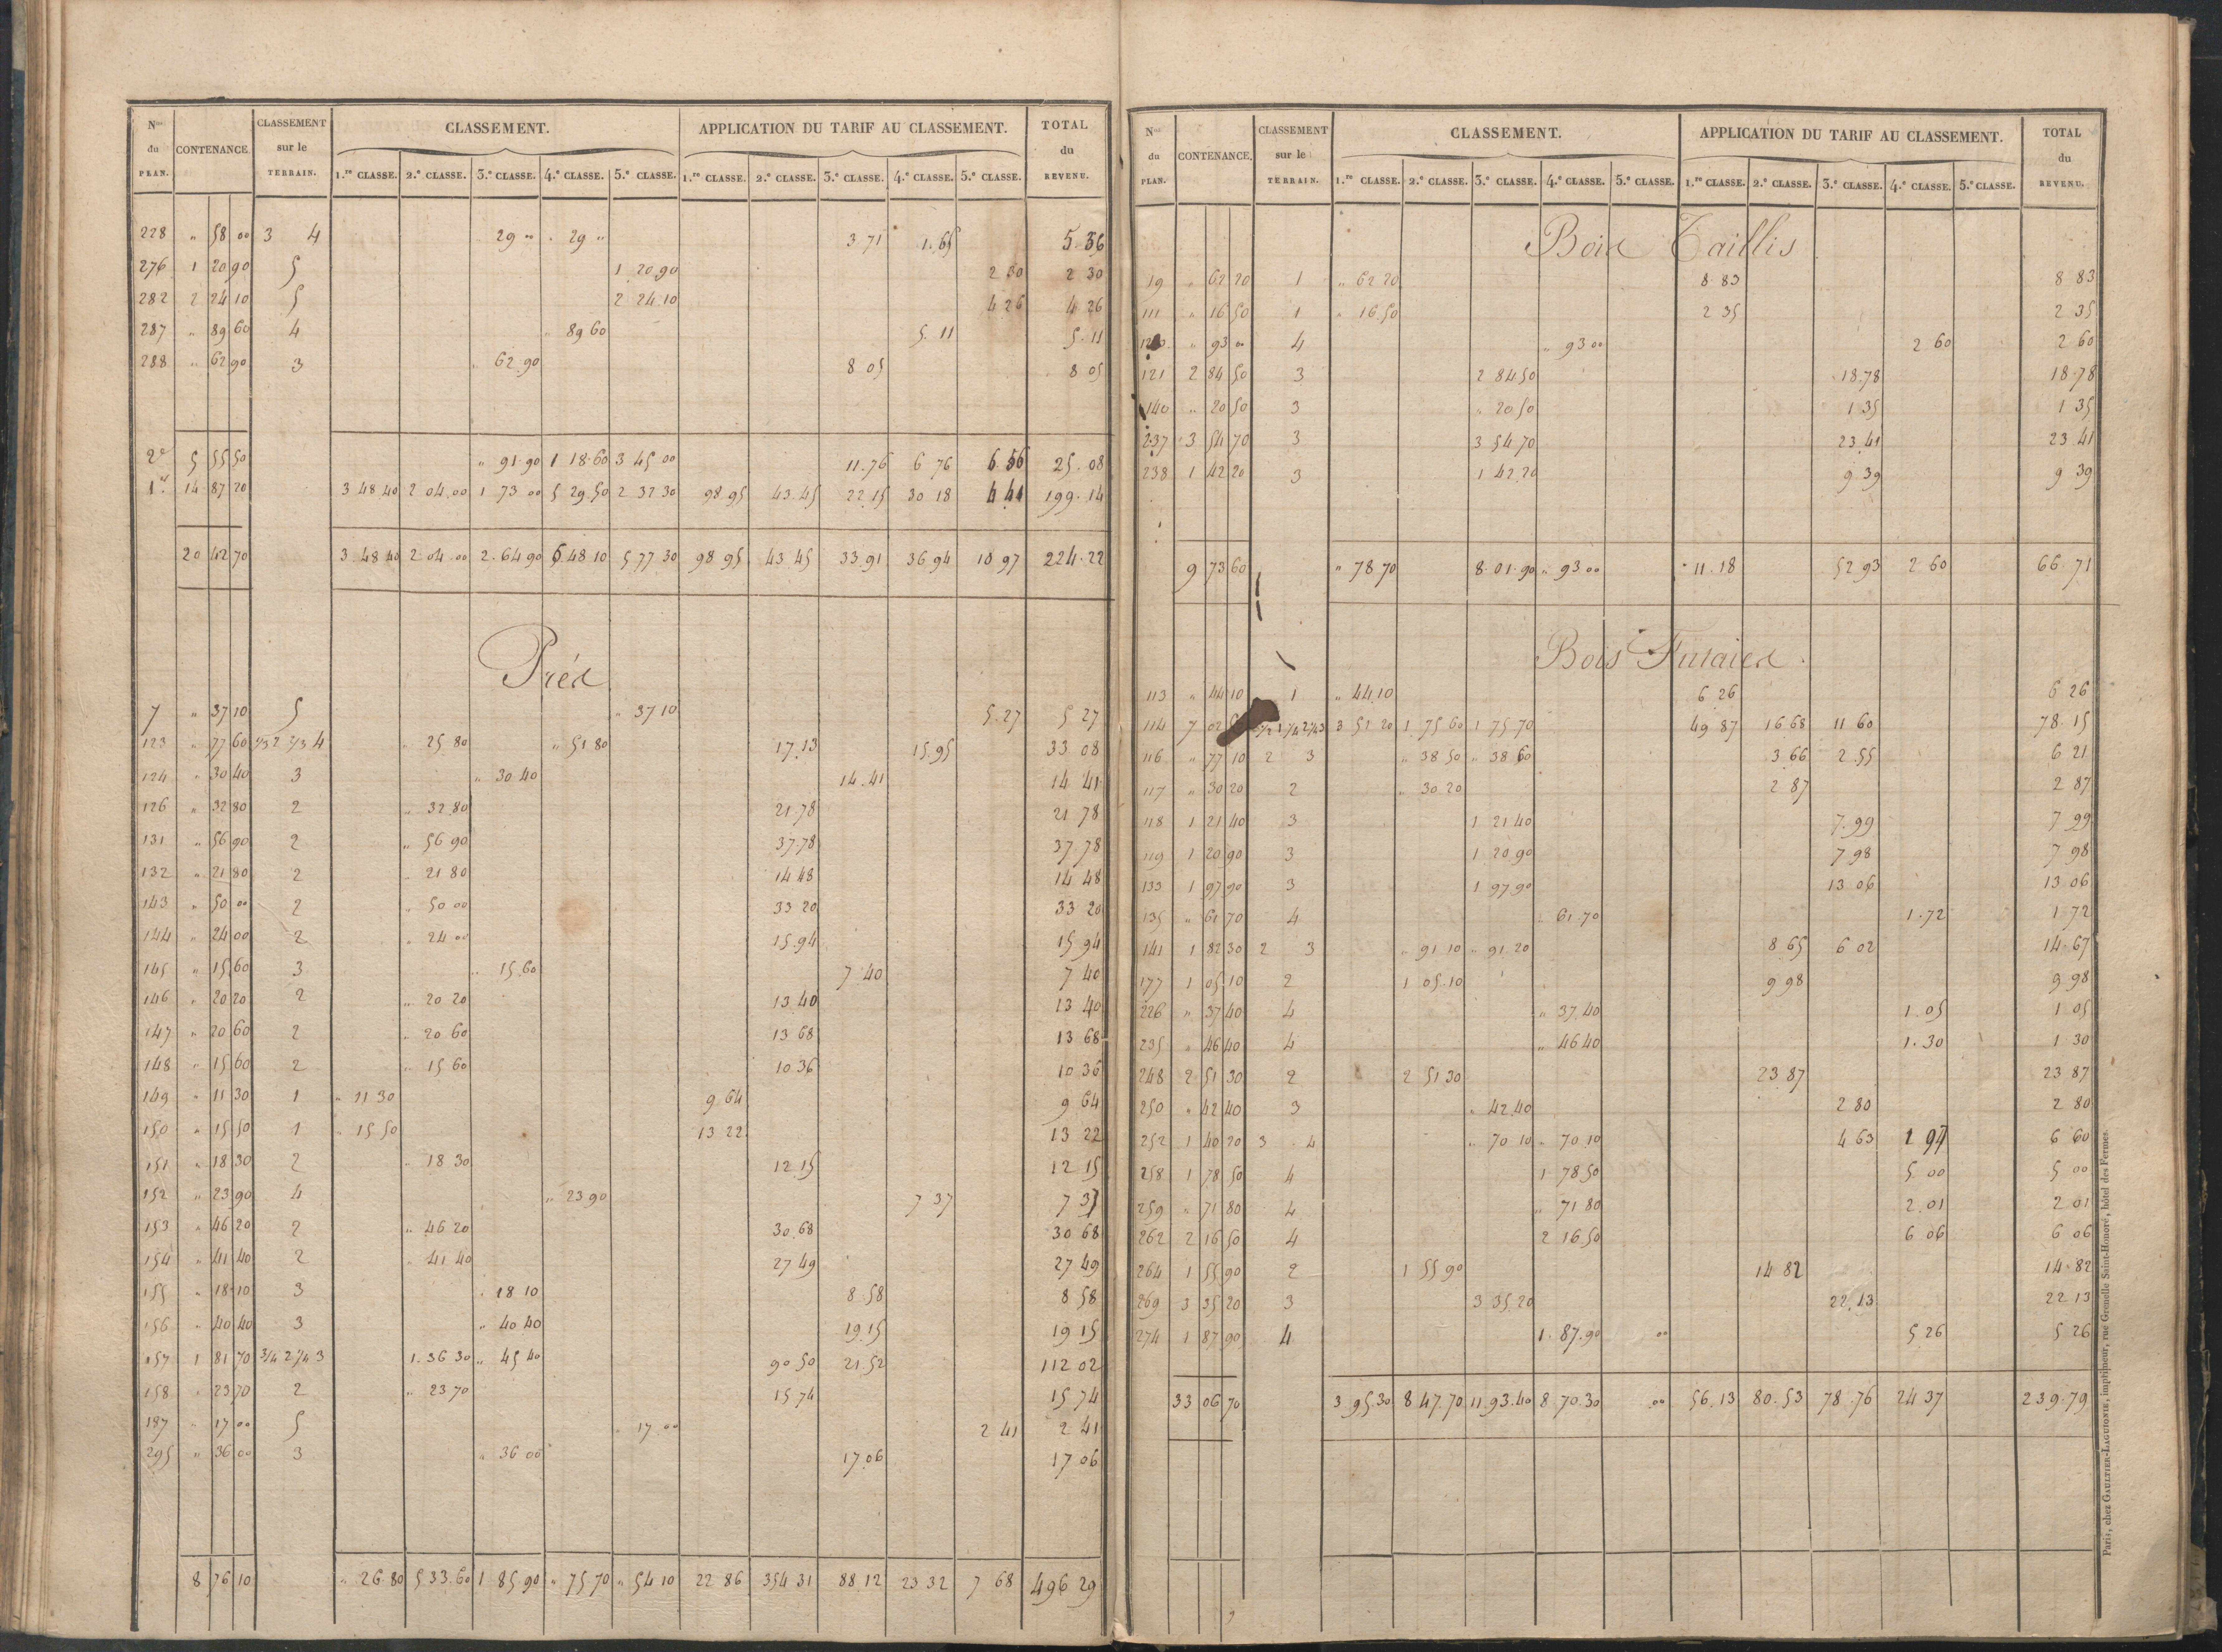 Nos du PLAN. CONTENANCE. CLASSEMENT sur le TERRAIN. CLASSEMENT. APPLICATION DU TARIF AU CLASSEMENT. TOTAL du REVENU.
1.re CLASSE. 2.e CLASSE. 3.e CLASSE. 4.e CLASSE. 5.e CLASSE. 1.re CLASSE. 2.e CLASSE. 3.e CLASSE. 4.e CLASSE. 5.e CLASSE.
228 " 58 00 3 4 29 " " 29 " 3 71 1.65 5.36
276 1 20 90 5 1 20 90 2 30 2 30
282 2 24 10 5 2 24 10 4 26 4 26
287 " 89 60 4 " 89 60 5.11 5.11
288 " 62 90 3 " 62.90 8 05 8 05
2e 5 55 50 " 91.90 1 18.60 3 45 00 11.76 6 76 6.56 25.08
1er 14 87 20 3 48.40 2 04.00 1 73 00 5 29.50 2 32 30 98 95 43.45 22 15 30 18 4 41 199.14
20 42 70 3.48 40 2 04.00 2.64 90 6 48 10 5 77 30 98 95 43 45 33.91 36.94 10 97 224.22
Prés
7 " 37 10 5 " 37 10 5.27 5 27
123 " 77 60 1/3 2 2/3 4 " 25 80 " 51 80 17.13 15.95 33 08
124 " 30 40 3 " 30 40 14.41 14 41
126 " 32 80 2 " 32.80 21.78 21 78
131 " 56 90 2 " 56 90 37.78 37 78
132 " 21 80 2 " 21 80 14 48 14 48
143 " 50 00 2 " 50 00 33 20 33 20
144 " 24 00 2 " 24 00 15.94 15 94
145 " 15 60 3 " 15.60 7 40 7 40
146 " 20 20 2 " 20 20 13.40 13 40
147 " 20 60 2 " 20 60 13 68 13 68
148 " 15 60 2 " 15 60 10 36 10 36
149 " 11 30 1 " 11 30 9 64 9 64
150 " 15 50 1 " 15 50 13 22 13 22
151 " 18 30 2 " 18 30 12 15 12 15
152 " 23 90 4 " 23 90 7 37 7 37
153 " 46 20 2 " 46 20 30.68 30 68
154 " 41 40 2 " 41 40 27 49 27 49
155 " 18 10 3 " 18 10 8.58 8 58
156 " 40 40 3 " 40 40 19 15 19 15
157 1 81 70 3/4 2 1/4 3 1.36 30 " 45 40 90 50 21.52 112 02
158 " 23 70 2 " 23 70 15.74 15 74
187 " 17 00 5 " 17 00 2 41 2 41
295 " 36 00 3 " 36 00 17.06 17 06
8 76 10 " 26.80 5 33.60 1 85.90 " 75 70 " 54 10 22 86 354 31 88.12 23 32 7 68 496 29
Nos du PLAN. CONTENANCE. CLASSEMENT sur le TERRAIN. CLASSEMENT. APPLICATION DU TARIF AU CLASSEMENT. TOTAL du REVENU.
1.re CLASSE. 2.e CLASSE. 3.e CLASSE. 4.e CLASSE. 5.e CLASSE. 1.re CLASSE. 2.e CLASSE. 3.e CLASSE. 4.e CLASSE. 5.e CLASSE.
Bois Taillis
19 " 62 20 1 " 62 20 8.83 8 83
111 " 16 50 1 " 16.50 2 35 2 35
" 93 00 4 " 93 00 2 60 2 60
121 2 84 50 3 2 84 50 18.78 18.78
140 " 20 50 3 " 20 50 1 35 1 35
237 3 54 70 3 3 54.70 23.41 23 41
238 1 42 20 3 1 42.20 9 39 9 39
9 73 60 " 78 70 8.01.90 " 93 00 11.18 52 93 2 60 66.71
Bois Futaies.
113 " 44 10 1 " 44.10 6 26 6 26
114 7 02 1/4 2 1/4 3 3 51 20 1 75 60 1 75 70 49 87 16.68 11 60 78.15
116 " 77 10 2 3 " 38 50 " 38 60 3.66 2.55 6 21
117 " 30 20 2 " 30 20 2 87 2 87
118 1 21 40 3 1 21 40 7.99 7 99
119 1 20 90 3 1 20 90 7 98 7 98
133 1 97 90 3 1 97.90 13 06 13 06
135 " 61 70 4 " 61.70 1.72 1 72
141 1 82 30 2 3 " 91 10 " 91 20 8 65 6 02 14.67
177 1 05 10 2 1 05.10 9 98 9 98
226 " 37 40 4 " 37.40 1 05 1 05
235 " 46 40 4 " 46 40 1.30 1 30
248 2 51 30 2 2 51.30 23 87 23 87
250 " 42 40 3 " 42.40 2 80 2 80
252 1 40 20 3 4 " 70 10 " 70 10 4 63 1 97 6 60
258 1 78 50 4 1 78 50 5 00 5 00
259 " 71 80 4 " 71 80 2.01 2 01
262 2 16 50 4 2 16.50 6 06 6 06
264 1 55 90 2 1 55 90 14 82 14.82
269 3 35 20 3 3 35.20 22.13 22 13
274 1 87 90 4 1.87.90 00 5 26 5 26
33 06 70 3.95.30 8 47.70 11.93.40 8 70.30 00 56.13 80.53 78.76 24 37 239.79
Paris, chez GAULTIER-LAGUIONIE, imprimeur, rue Grenelle Saint-Honoré, hôtel des Fermes.